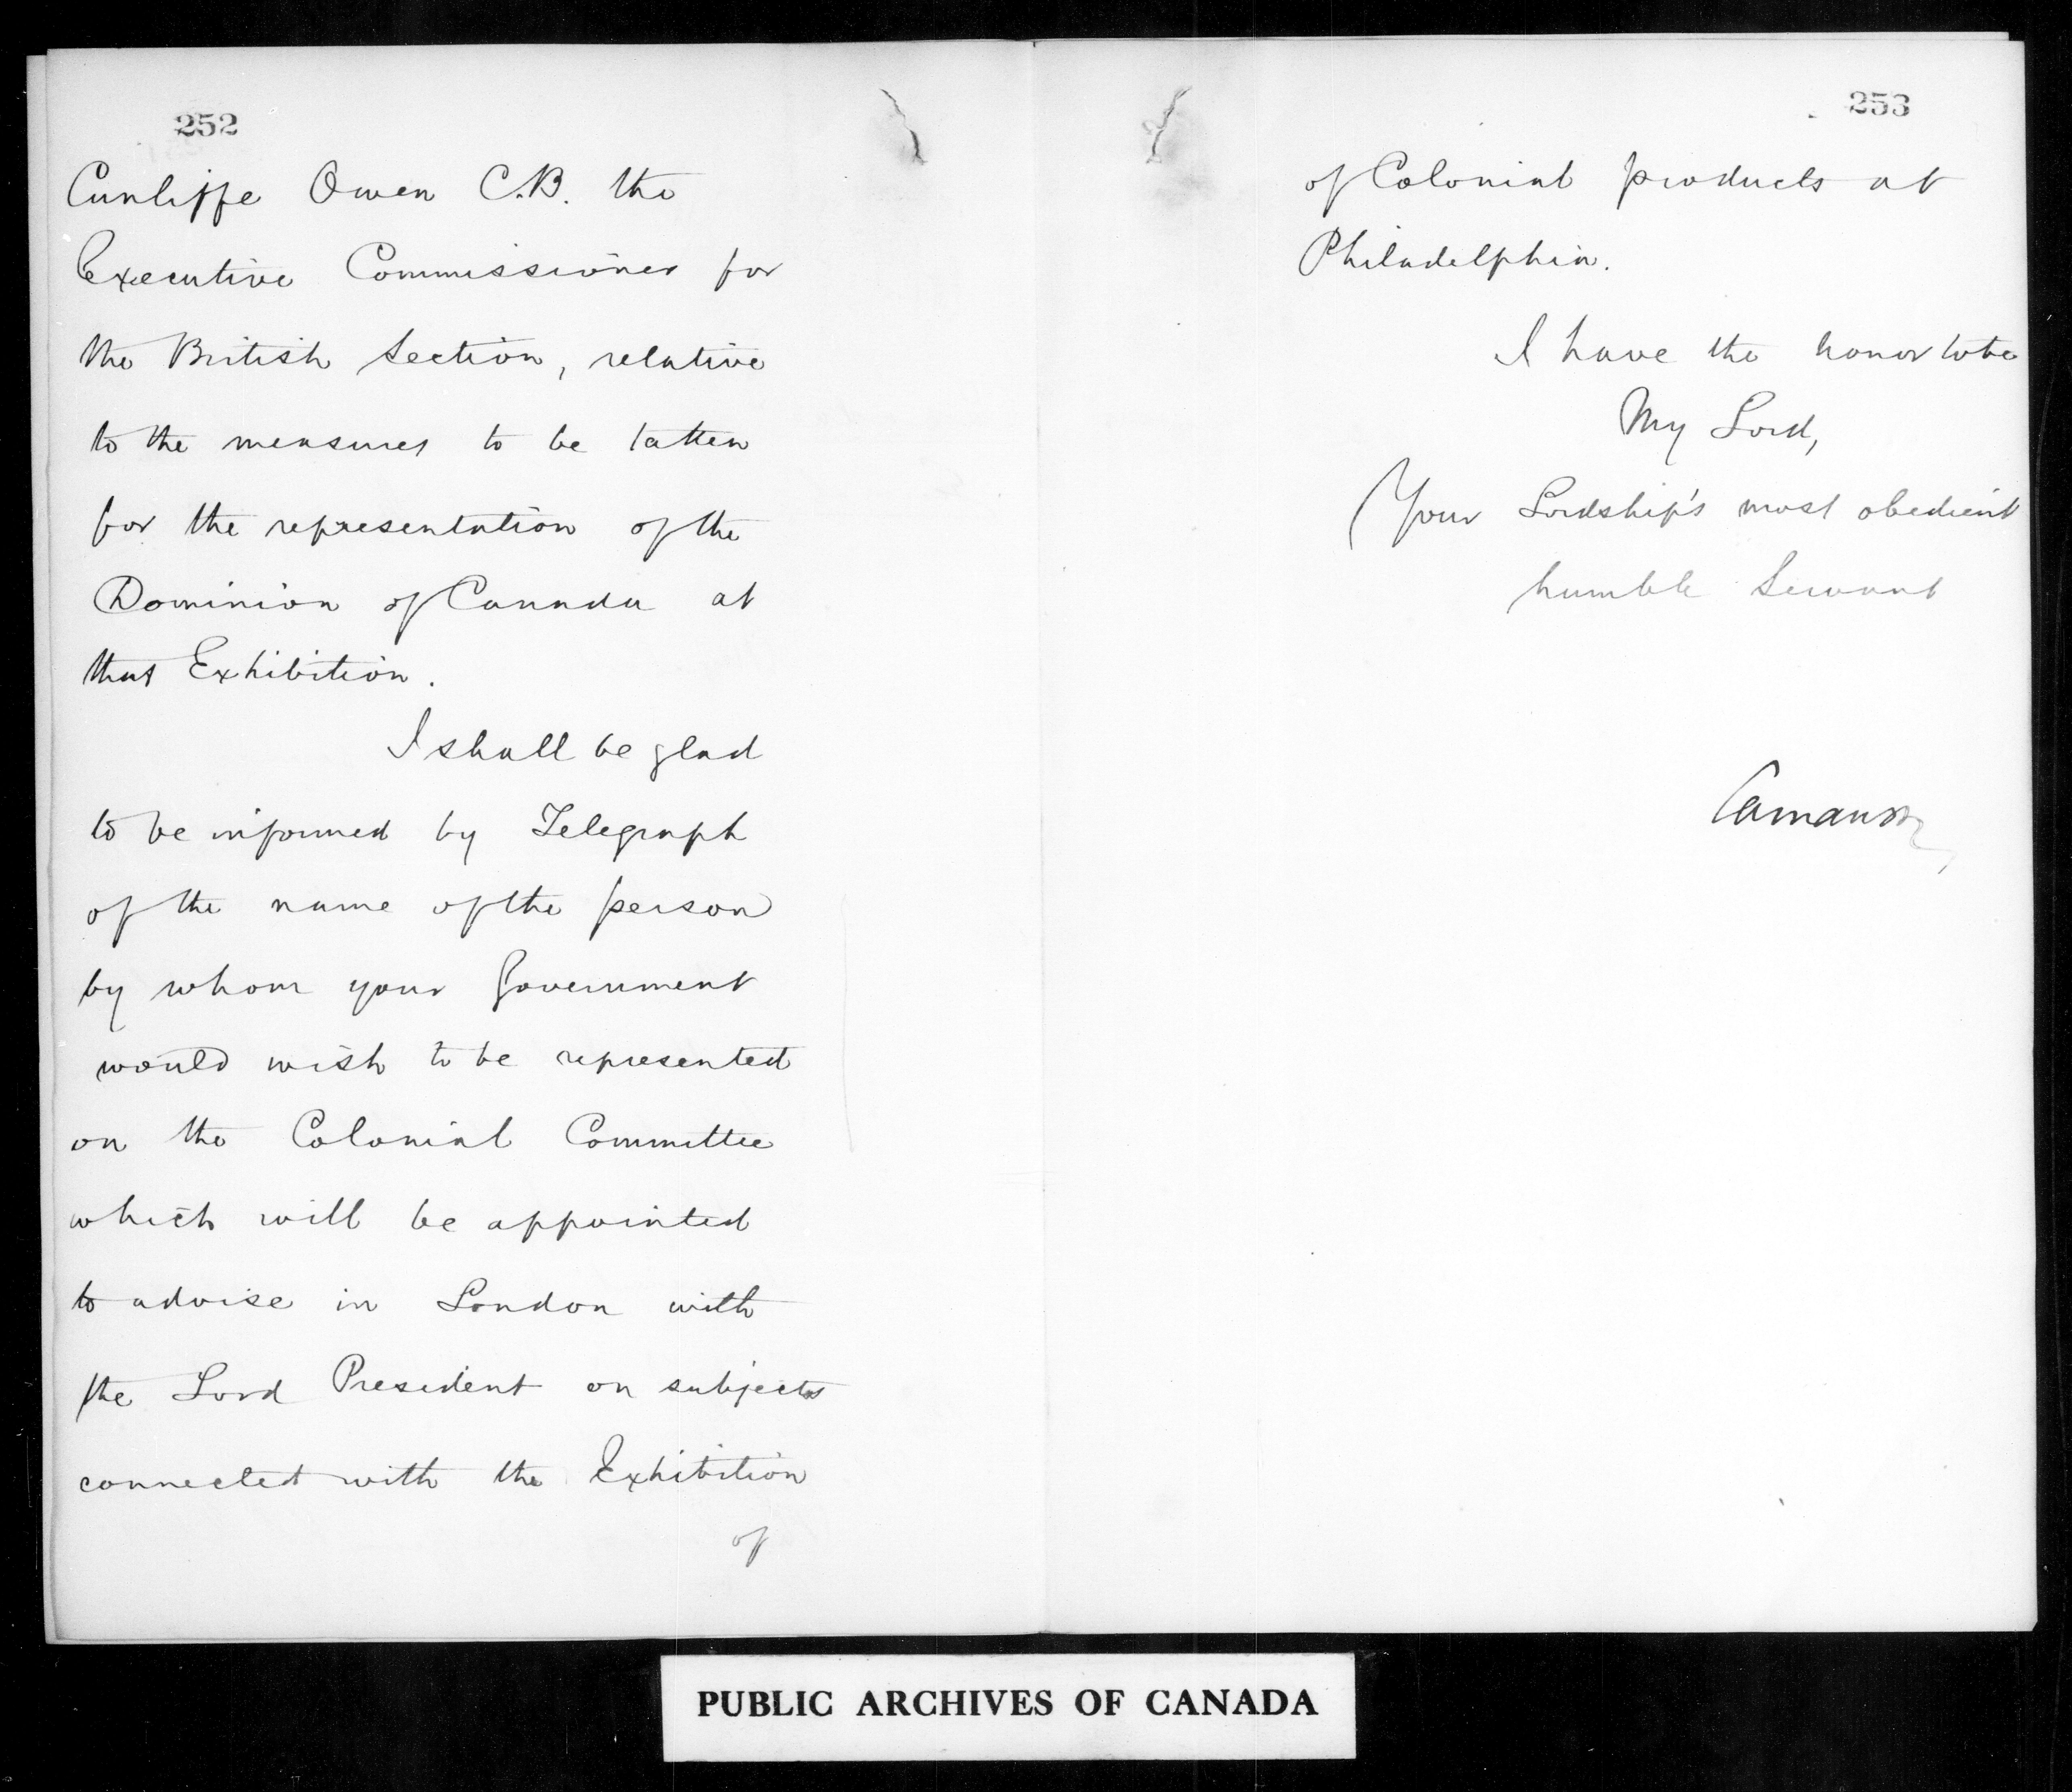 252
Cunliffe Owen C.B. the
Executive Commissioner for
the British Section, relative
to the measures to be taken
for the representation of the
Dominion of Canada at
that Exhibition.
I shall be glad
to be informed by Telegraph
of the name of the person
by whom your Government
would wish to be represented
on the Colonial Committee
which will be appointed
to advise in London with
the Lord President on subjects
connected with the Exhibition
of
253
of Colonial products at
Philadelphia.
I have the honor to be
My Lord,
Your Lordship's most obedient
humble Servant
Carnarvon
PUBLIC ARCHIVES OF CANADA